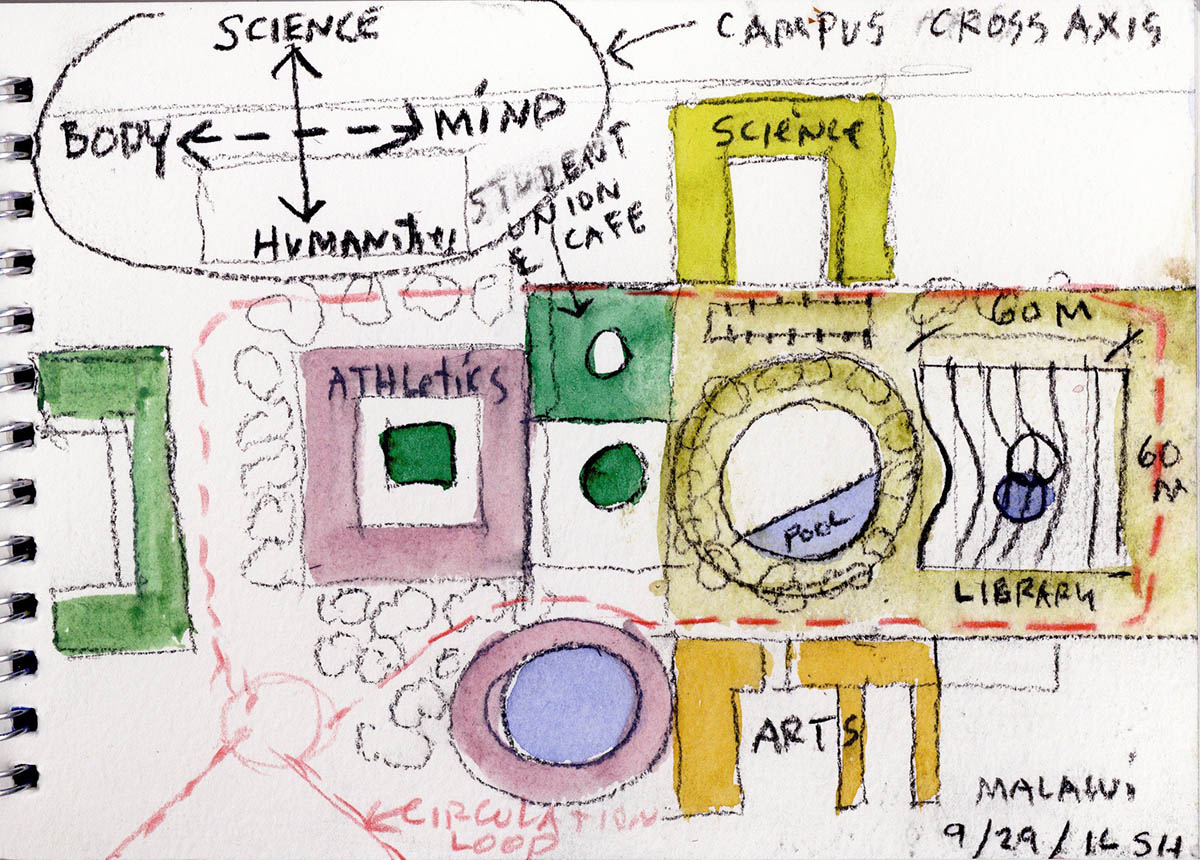 SCIENCE
CAMPUS CROSS AXIS
BODY
MIND
HUMANITIES
STUDENT
UNION
& CAFE
SCIENCE
60 M
ATHLETICS
60
M
POOL
LIBRARY
ARTS
CIRCULATION
LOOP
MALAWI
9/29/16 SH